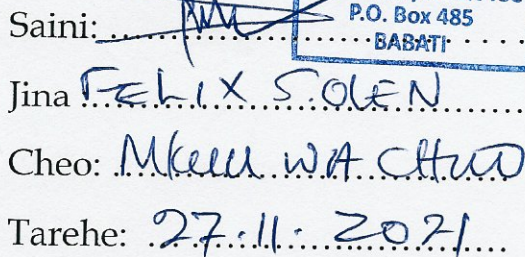 P.O. Box 485
Saini:
BABATI
Jina FELIX S. OLEN
Cheo: Mkuu WA CHUO
Tarehe: 27.11.2021